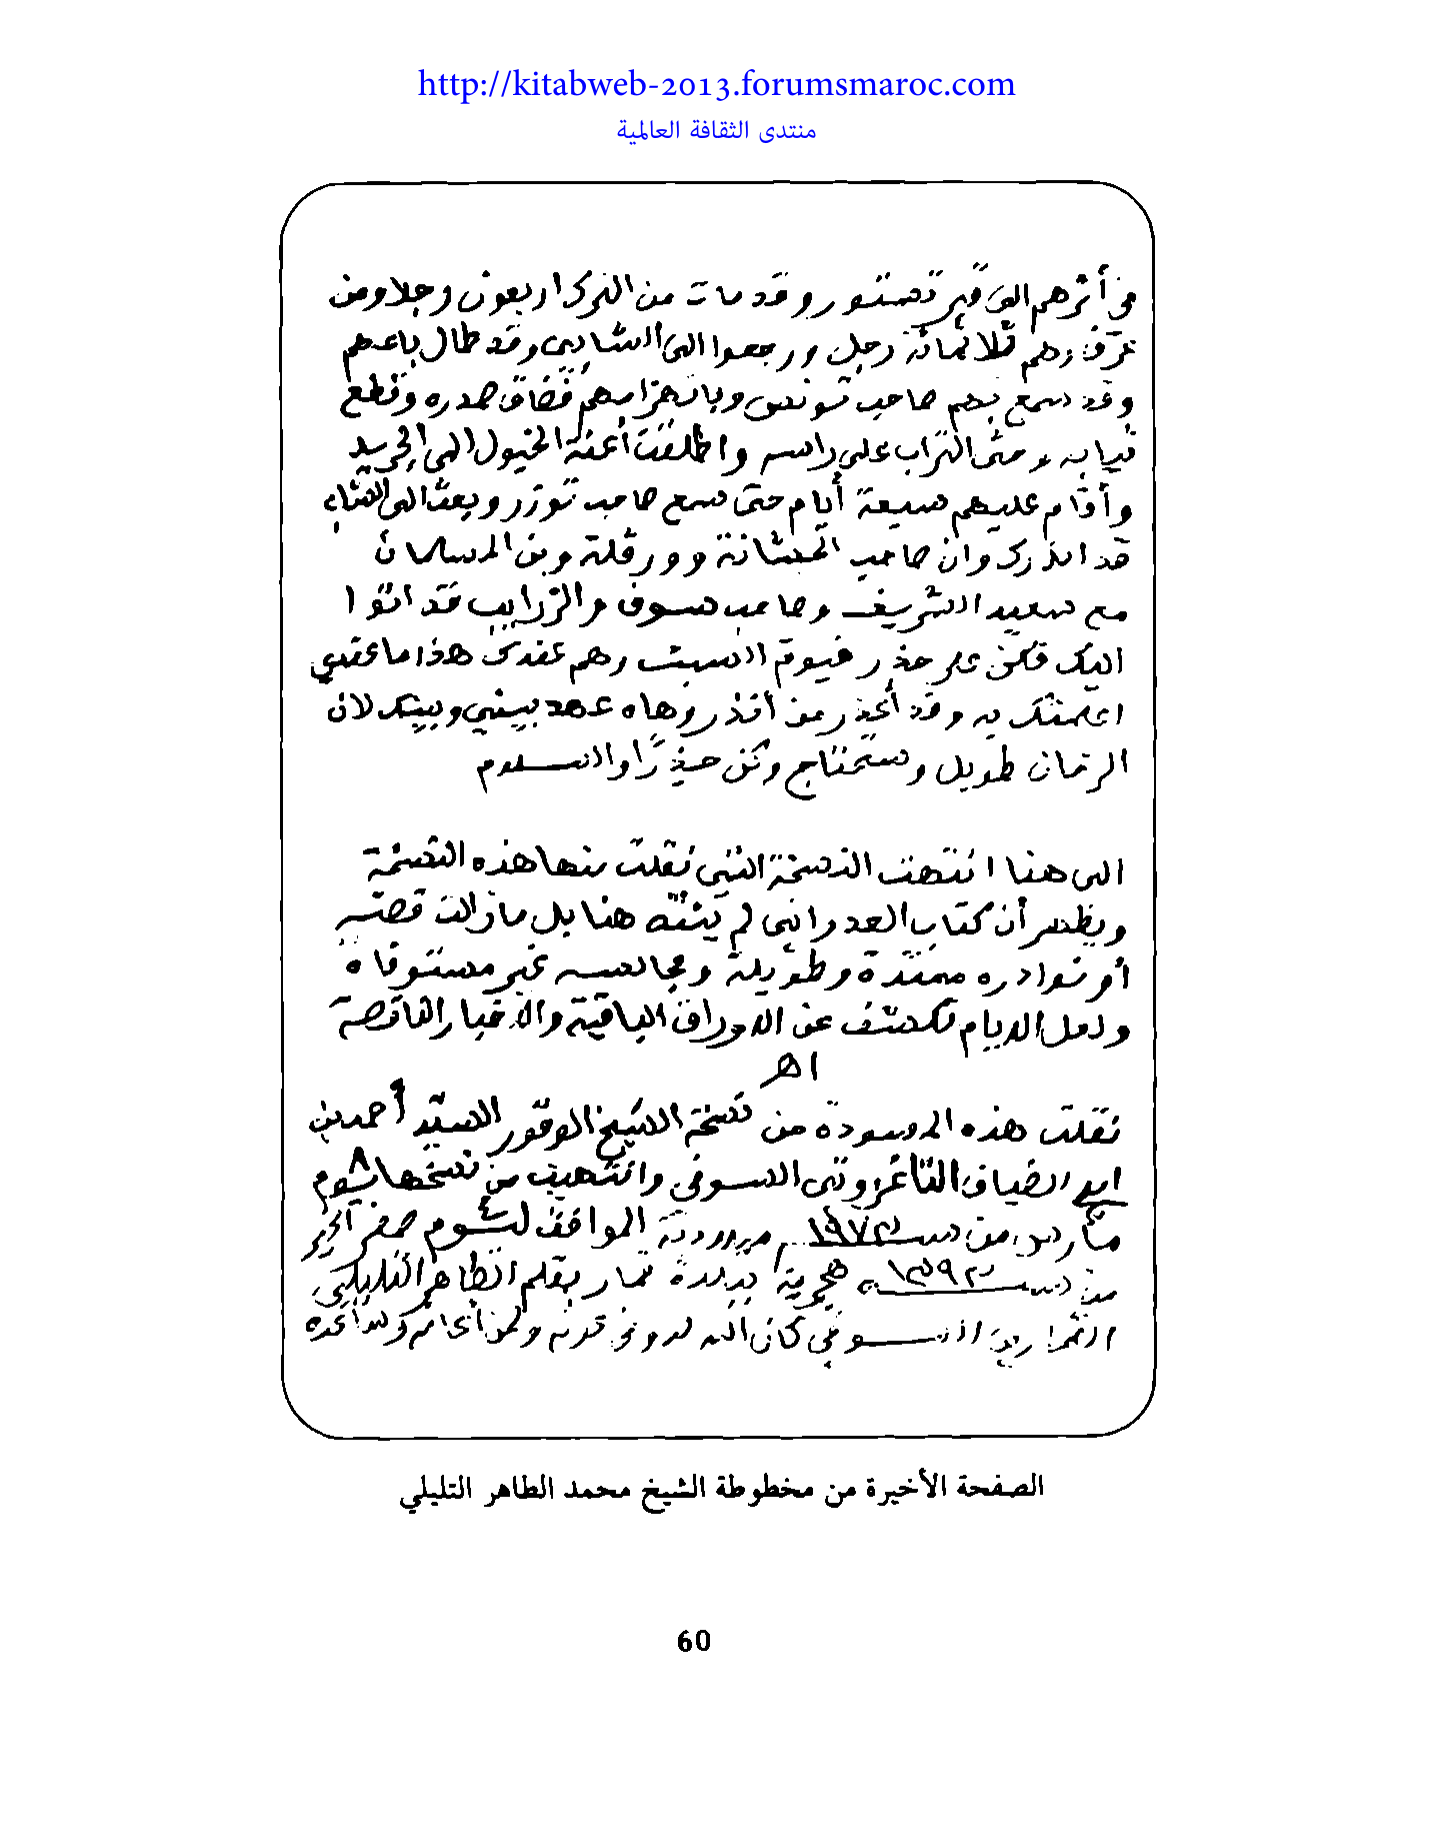 http://kitabweb-2013.forumsmaroc.com
منتدى الثقافة العالمية
في أثرهم الى قرب تستور وقد مات من الترك اربعون رجلا ومن
غيرهم ثلاثمائة رجل ورجعوا الى الشابي وقد طال باعهم
وقد سمع بهم صاحب تونس وبانهزامهم فضاق صدره وقطع
ثيابه وحثى التراب على راسه واطلقت أعنة الخيول الى الجريد
وأقام عليهم سبعة أيام حتى سمع صاحب توزر وبعث الى الشابي
قد انذرك وان صاحب الحشانة وورقلة وبني المسلمان
مع سعيد الشريف وصاحب سوف والزرايب قد اتوا
اليك فكن على حذر فيوم السبت وهم عندك هذا ما عندي
اعلمتك به وقد أعذر من أنذر وهاه عهد بيني وبينك لان
الزمان طويل وستحتاج وكن حذرًا والسلام
الى هنا انتهت النسخة التي نقلت منها هذه النسخة
ويظهر أن كتاب العدواني لم ينته هنا بل مازالت قصته
أو نوادره ممتدة وطويلة ومجالسه غير مستوفاة
ولعل الايام تكشف عن الاوراق الباقية والأخبار الناقصة
اهـ
نقلت هذه المسودة من نسخة الشيخ الوقور السيد أحمد بن
ابي الضياف التاغزوتي السوفي وانتهيت من نسخها يوم ٨
مارس من سنة ١٩٧٢م الموافق ليوم ٤ صفر الخير
من سنة ١٣٩٢ هجرية ببلدة قمار بقلم الطاهر التليلي
القماري السوفي كان الله له وفي عونه ولمن أعانه وساعده
الصفحة الأخيرة من مخطوطة الشيخ محمد الطاهر التليلي
60